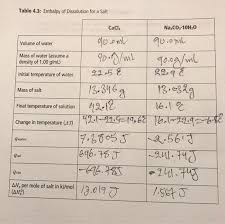 Table 4.3: Enthalpy of Dissolution for a Salt
CaCl₂
Na₂CO₃·10H₂O
Volume of water
90.0mL
90.0mL
Mass of water (assume a density of 1.00 g/mL)
90.0g/mL
90.0g/mL
Initial temperature of water
22.5°C
22.9°C
Mass of salt
13.346g
13.032g
Final temperature of solution
42.1°C
16.1°C
Change in temperature (ΔT)
16.1-22.9=-6.8°C
7.3805J
-2.561J
696.78J
-241.74J
-696.78J
13.019J
1.567J
ΔH, per mole of salt in kJ/mol